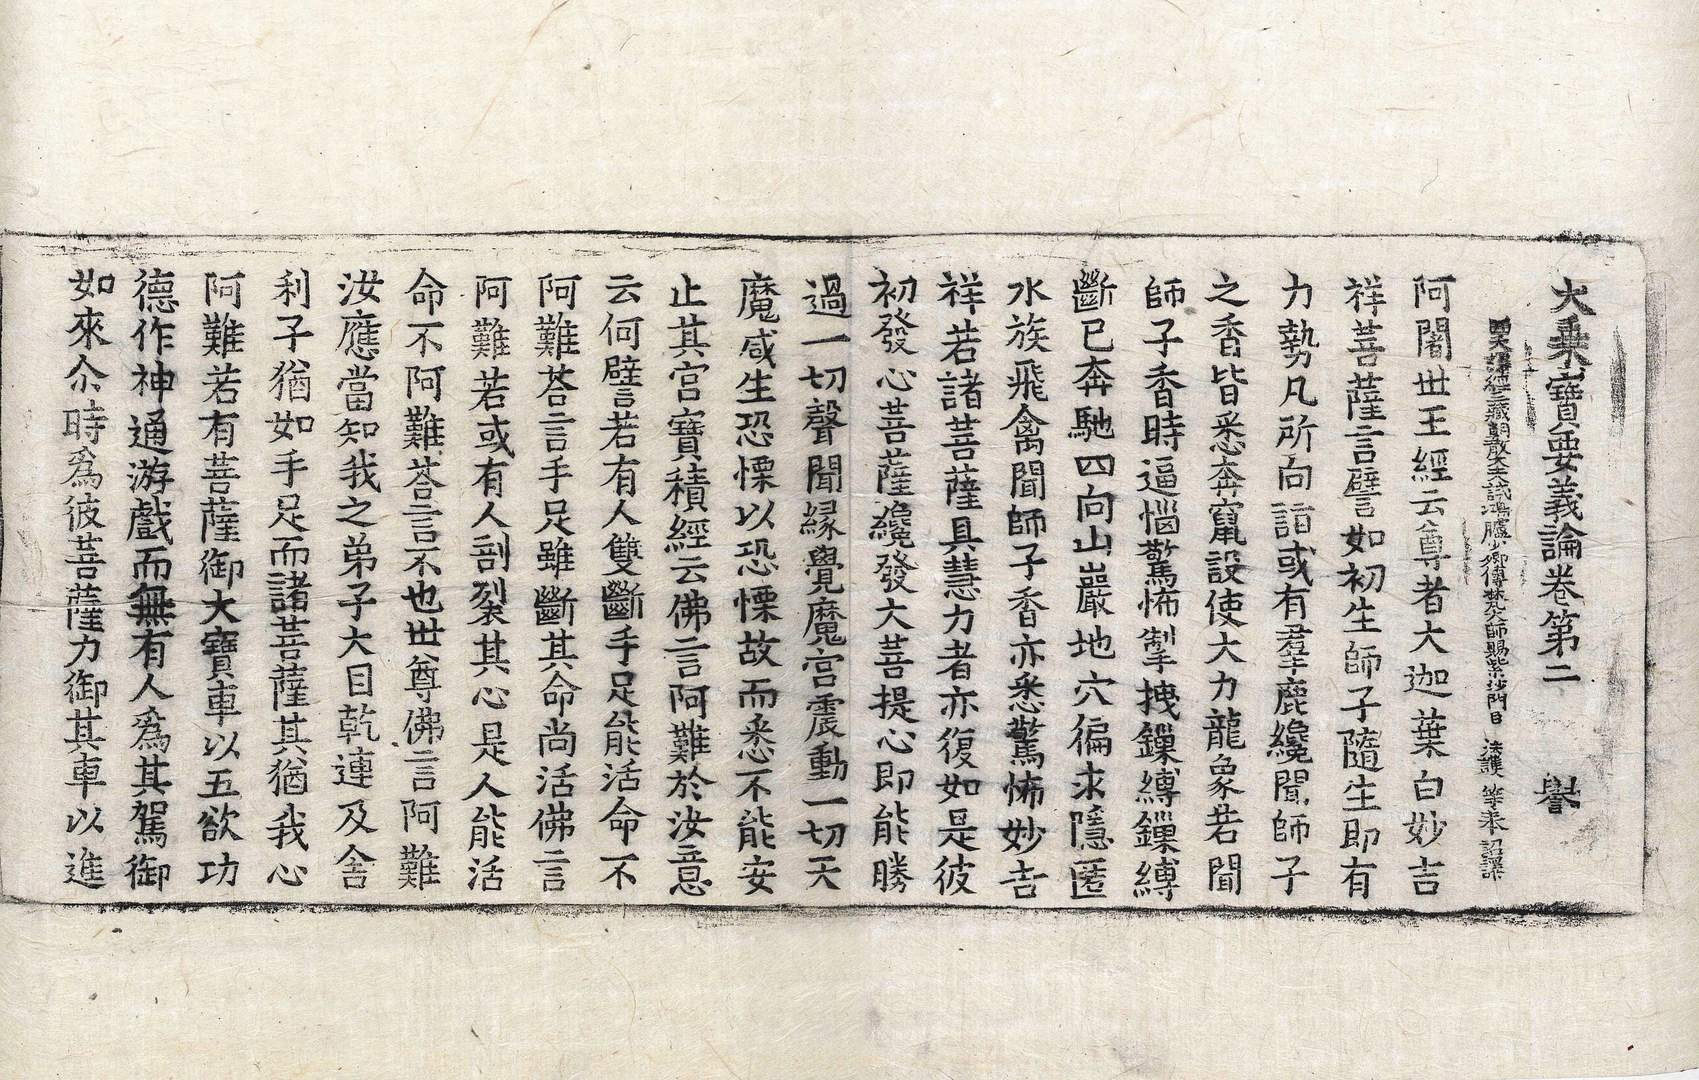 大乗寶要義論卷第二　譽
西天譯經三藏朝散大夫試鴻臚少卿傳梵大師賜紫沙門臣 法護 等奉 詔譯
阿闍世王經云尊者大迦葉白妙吉
祥菩薩言譬如初生師子隨生即有
力勢凡所向詣或有羣鹿纔聞師子
之香皆悉奔竄設使大力龍象若聞
師子香時逼惱驚怖掣拽鏁縛鏁縛
斷已奔馳四向山巖地穴徧求隱匿
水族飛禽聞師子香亦悉驚怖妙吉
祥若諸菩薩具慧力者亦復如是彼
初發心菩薩纔發大菩提心即能勝
過一切聲聞緣覺魔宮震動一切天
魔咸生恐慄以恐慄故而悉不能安
止其宮寶積經云佛言阿難於汝意
云何譬若有人雙斷手足能活命不
阿難荅言手足雖斷其命尚活佛言
阿難若或有人剖裂其心是人能活
命不阿難荅言不也世尊佛言阿難
汝應當知我之弟子大目乾連及舍
利子猶如手足而諸菩薩其猶我心
阿難若有菩薩御大寶車以五欲功
德作神通游戲而無有人爲其駕御
如來尒時爲彼菩薩力御其車以進